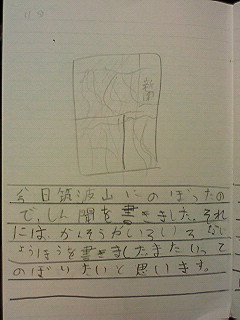 新聞
今日筑波山にのぼったの
で、しん聞を書きました。それ
には、かんそうやいろいろな
ようほうを書きましたまたいって
のぼりたいと思います。